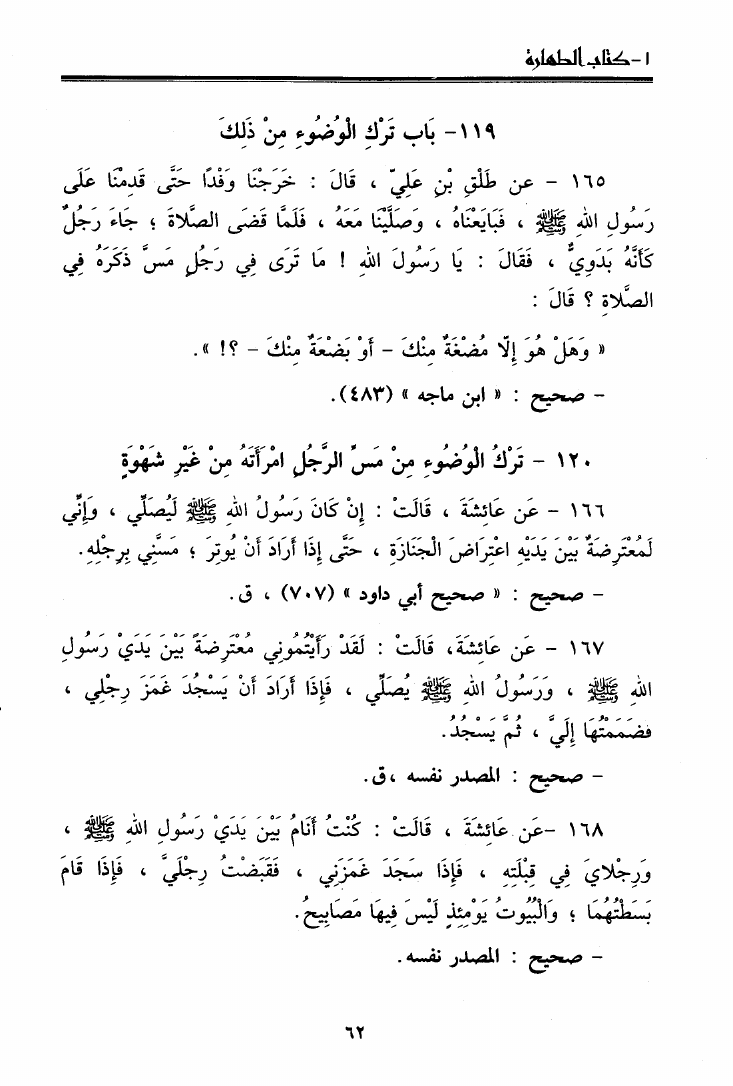 ١-كتاب الطهارة
١١٩- بَاب تَرْكِ الْوُضُوءِ مِنْ ذَلِكَ
١٦٥ - عن طَلْقِ بْنِ عَلِيّ ، قَالَ : خَرَجْنَا وَفْدًا حَتَّى قَدِمْنَا عَلَى
رَسُولِ اللهِ ﷺ ، فَبَايَعْنَاهُ ، وَصَلَّيْنَا مَعَهُ ، فَلَمَّا قَضَى الصَّلَاةَ ؛ جَاءَ رَجُلٌ
كَأَنَّهُ بَدَوِيٌّ ، فَقَالَ : يَا رَسُولَ اللهِ ! مَا تَرَى فِي رَجُلٍ مَسَّ ذَكَرَهُ فِي
الصَّلَاةِ ؟ قَالَ :
« وَهَلْ هُوَ إِلَّا مُضْغَةٌ مِنْكَ - أَوْ بَضْعَةٌ مِنْكَ - ؟! » .
- صحيح : « ابن ماجه » (٤٨٣).
١٢٠ - تَرْكُ الْوُضُوءِ مِنْ مَسِّ الرَّجُلِ امْرَأَتَهُ مِنْ غَيْرِ شَهْوَةٍ
١٦٦ - عَن عَائِشَةَ ، قَالَتْ : إِنْ كَانَ رَسُولُ اللهِ ﷺ لَيُصَلِّي ، وَإِنِّي
لَمُعْتَرِضَةٌ بَيْنَ يَدَيْهِ اعْتِرَاضَ الْجَنَازَةِ ، حَتَّى إِذَا أَرَادَ أَنْ يُوتِرَ ؛ مَسَّنِي بِرِجْلِهِ.
- صحيح : « صحيح أبي داود » (٧٠٧) ، ق.
١٦٧ - عَن عَائِشَةَ، قَالَتْ : لَقَدْ رَأَيْتُمُونِي مُعْتَرِضَةً بَيْنَ يَدَيْ رَسُولِ
اللهِ ﷺ ، وَرَسُولُ اللهِ ﷺ يُصَلِّي ، فَإِذَا أَرَادَ أَنْ يَسْجُدَ غَمَزَ رِجْلِي ،
فضَمَمْتُهَا إِلَيَّ ، ثُمَّ يَسْجُدُ.
- صحيح : المصدر نفسه ،ق.
١٦٨ -عَن عَائِشَةَ ، قَالَتْ : كُنْتُ أَنَامُ بَيْنَ يَدَيْ رَسُولِ اللهِ ﷺ ،
وَرِجْلَايَ فِي قِبْلَتِهِ ، فَإِذَا سَجَدَ غَمَزَنِي ، فَقَبَضْتُ رِجْلَيَّ ، فَإِذَا قَامَ
بَسَطْتُهُمَا ؛ وَالْبُيُوتُ يَوْمَئِذٍ لَيْسَ فِيهَا مَصَابِيحُ.
- صحيح : المصدر نفسه.
٦٢